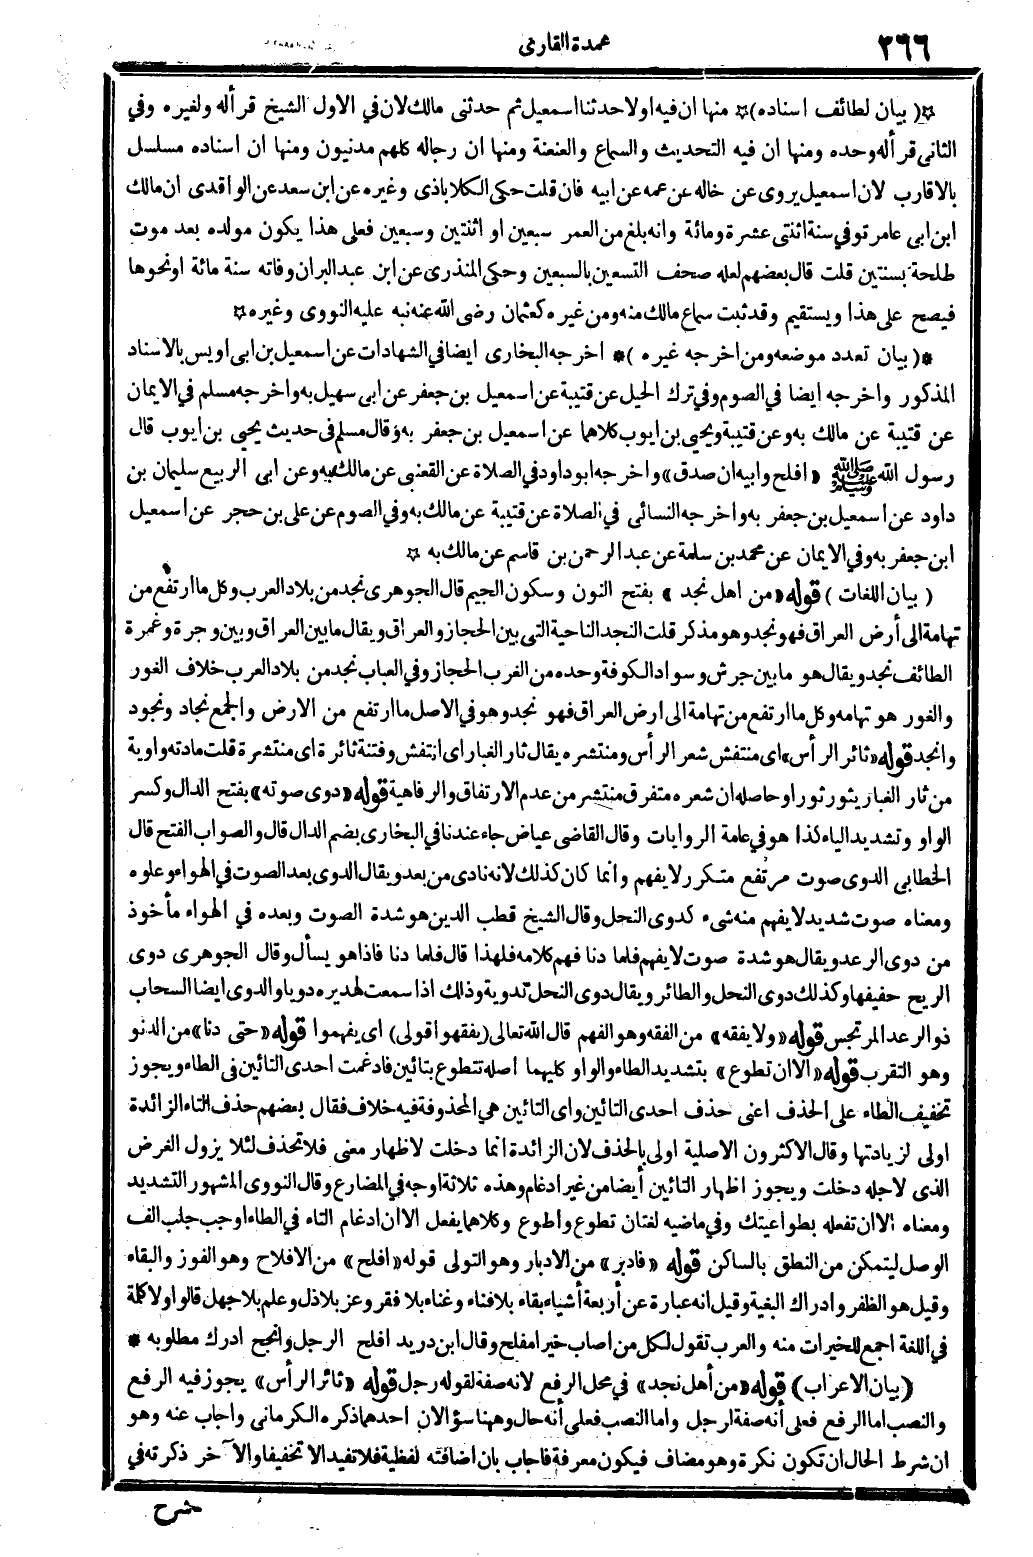 ٢٦٦
عمدة القارى
✩( بيان لطائف اسناده )✩ منها ان فيه اولا حدثنا اسمعيل ثم حدثنى مالك لان في الاول الشيخ قرأ له ولغيره وفي
الثانى قرأ له وحده ومنها ان فيه التحديث والسماع والعنعنة ومنها ان رجاله كلهم مدنيون ومنها ان اسناده مسلسل
بالاقارب لان اسمعيل يروى عن خاله عن عمه عن ابيه فان قلت حكى الكلاباذى وغيره عن ابن سعد عن الواقدى ان مالك
ابن ابى عامر توفي سنة اثنتى عشرة ومائة وانه بلغ من العمر سبعين او اثنتين وسبعين فعلى هذا يكون مولده بعد موت
طلحة بسنتين قلت قال بعضهم لعله صحف التسعين بالسبعين وحكى المنذرى عن ابن عبد البر ان وفاته سنة مائة او نحوها
فيصح على هذا ويستقيم وقد ثبت سماع مالك منه ومن غيره كعثمان رضى الله عنه نبه عليه النووى وغيره ✩
*( بيان تعدد موضعه ومن اخرجه غيره )* اخرجه البخارى ايضا في الشهادات عن اسمعيل بن ابى اويس بالاسناد
المذكور واخرجه ايضا في الصوم وفي ترك الحيل عن قتيبة عن اسمعيل بن جعفر عن ابى سهيل به واخرجه مسلم في الايمان
عن قتيبة عن مالك به وعن قتيبة ويحيى بن ايوب كلاهما عن اسمعيل بن جعفر به وقال مسلم فى حديث يحيى بن ايوب قال
رسول الله ﷺ «افلح وابيه ان صدق» واخرجه ابو داود في الصلاة عن القعنبى عن مالك به وعن ابى الربيع سليمان بن
داود عن اسمعيل بن جعفر به واخرجه النسائى في الصلاة عن قتيبة عن مالك به وفي الصوم عن على بن حجر عن اسمعيل
ابن جعفر به وفي الايمان عن محمد بن سلمة عن عبد الرحمن بن قاسم عن مالك به ✩
( بيان اللغات ) قوله «من اهل نجد» بفتح النون وسكون الجيم قال الجوهرى نجد من بلاد العرب وكل ما ارتفع من
تهامة الى أرض العراق فهو نجد وهو مذكر قلت النجد الناحية التى بين الحجاز والعراق ويقال ما بين العراق وبين وجرة وغمرة
الطائف نجد ويقال هو ما بين جرش وسواد الكوفة وحده من الغرب الحجاز وفي العباب نجد من بلاد العرب خلاف الغور
والغور هو تهامه وكل ما ارتفع من تهامة الى ارض العراق فهو نجد وهو في الاصل ما ارتفع من الارض والجمع نجاد ونجود
وانجد قوله «ثائر الرأس» اى منتفش شعر الرأس ومنتشره يقال ثار الغبار اى انتفش وفتنة ثائرة اى منتشرة قلت مادته واوية
من ثار الغبار يثور ثورا وحاصله ان شعره متفرق منتشر من عدم الارتفاق والرفاهية قوله «دوى صوته» بفتح الدال وكسر
الواو وتشديد الياء كذا هو في عامة الروايات وقال القاضى عياض جاء عندنا في البخارى بضم الدال قال والصواب الفتح قال
الخطابى الدوى صوت مرتفع متكرر لا يفهم وانما كان كذلك لانه نادى من بعد ويقال الدوى بعد الصوت في الهواء وعلوه
ومعناه صوت شديد لا يفهم منه شىء كدوى النحل وقال الشيخ قطب الدين هو شدة الصوت وبعده في الهواء مأخوذ
من دوى الرعد ويقال هو شدة صوت لا يفهم فلما دنا فهم كلامه فلهذا قال فلما دنا فاذا هو يسأل وقال الجوهرى دوى
الريح حفيفها وكذلك دوى النحل والطائر ويقال دوى النحل تدوية وذلك اذا سمعت لهديره دويا والدوى ايضا السحاب
ذو الرعد المرتجس قوله «ولا يفقه» من الفقه وهو الفهم قال الله تعالى (يفقهوا قولى) اى يفهموا قوله «حتى دنا» من الدنو
وهو التقرب قوله «الا ان تطوع» بتشديد الطاء والواو كليهما اصله تتطوع بتائين فادغمت احدى التائين فى الطاء ويجوز
تخفيف الطاء على الحذف اعنى حذف احدى التائين واى التائين هي المحذوفة فيه خلاف فقال بعضهم حذف التاء الزائدة
اولى لزيادتها وقال الاكثرون الاصلية اولى بالحذف لان الزائدة انما دخلت لاظهار معنى فلا تحذف لئلا يزول الغرض
الذى لاجله دخلت ويجوز اظهار التائين أيضا من غير ادغام وهذه ثلاثة اوجه في المضارع وقال النووى المشهور التشديد
ومعناه الا ان تفعله بطواعيتك وفي ماضيه لغتان تطوع واطوع وكلاهما يفعل الا ان ادغام التاء في الطاء اوجب جلب الف
الوصل ليتمكن من النطق بالساكن قوله «فادبر» من الادبار وهو التولى قوله «افلح» من الافلاح وهو الفوز والبقاء
وقيل هو الظفر وادراك البغية وقيل انه عبارة عن أربعة أشياء بقاء بلا فناء وغناء بلا فقر وعز بلا ذل وعلم بلا جهل قالوا ولا كلمة
في اللغة اجمع للخيرات منه والعرب تقول لكل من اصاب خيرا مفلح وقال ابن دريد افلح الرجل وانجح ادرك مطلوبه *
(بيان الاعراب) قوله «من أهل نجد» في محل الرفع لانه صفة لقوله رجل قوله «ثائر الرأس» يجوز فيه الرفع
والنصب اما الرفع فعلى أنه صفة لرجل واما النصب فعلى أنه حال وههنا سؤالان احدهما ذكره الكرمانى واجاب عنه وهو
ان شرط الحال ان تكون نكرة وهو مضاف فيكون معرفة فاجاب بان اضافته لفظية فلا تفيد الا تخفيفا والآخر ذكرته في
شرح